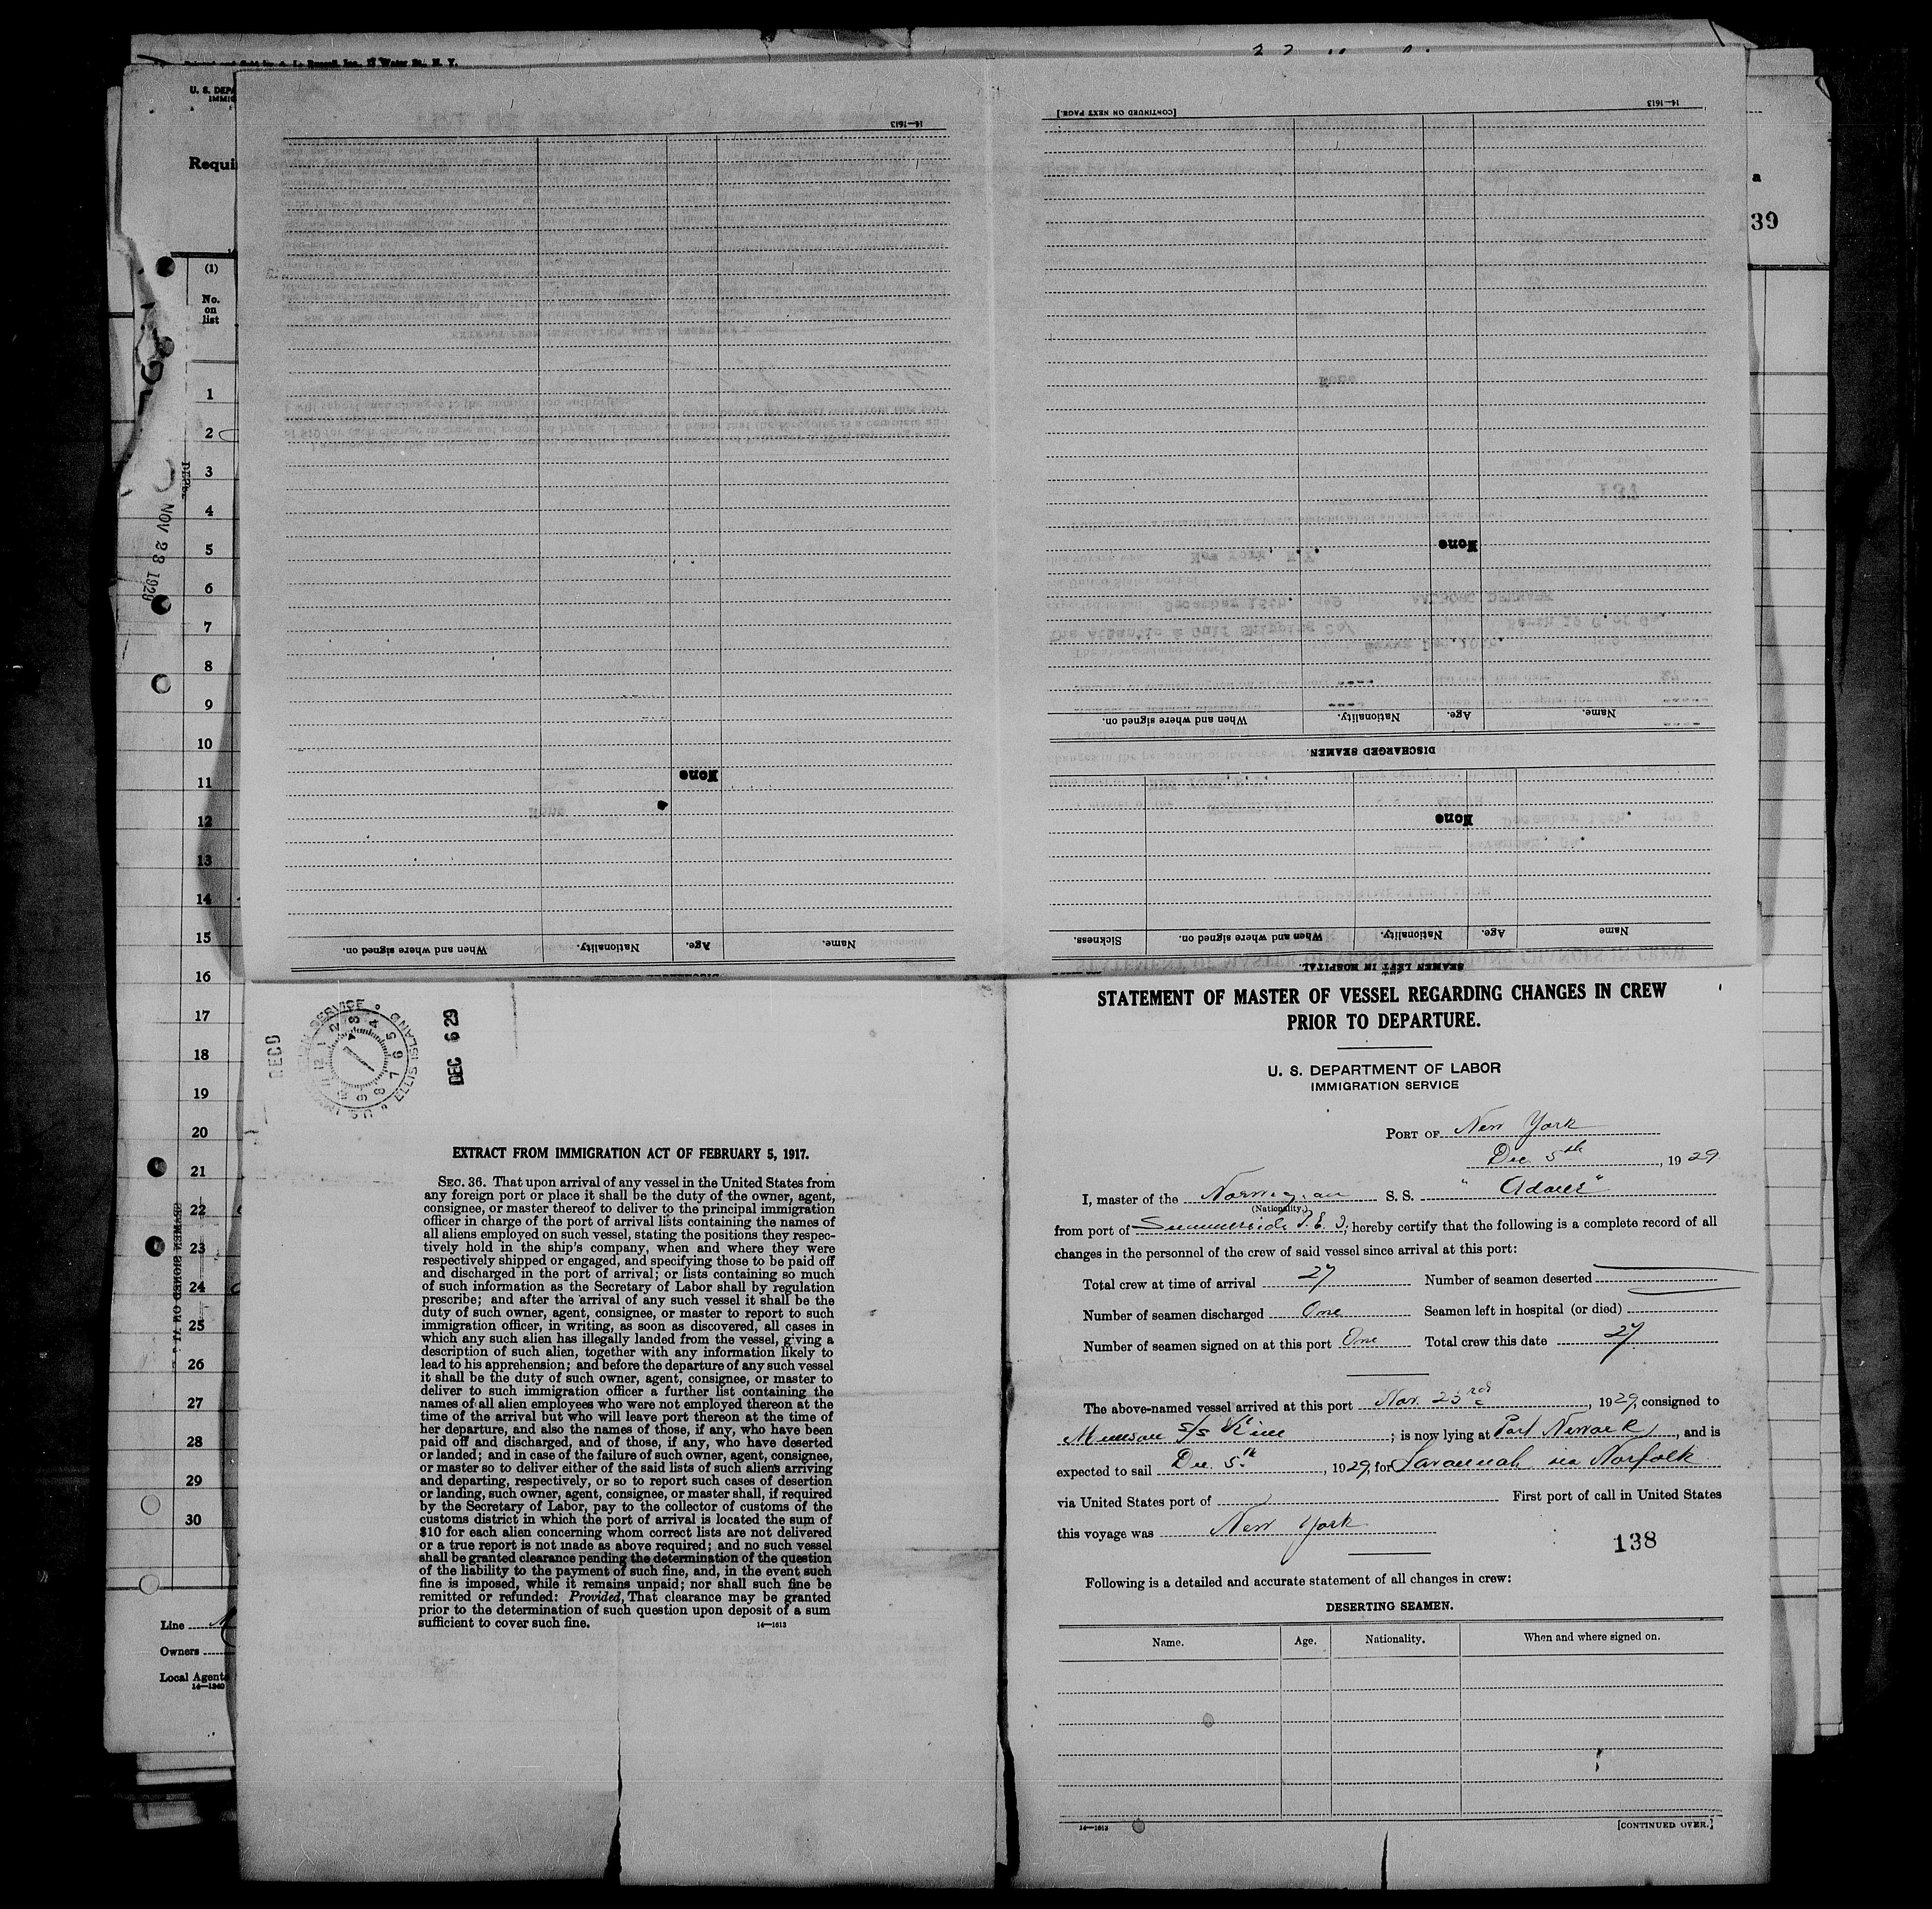 U. S. DEPA
IMMIG
Requi
39
(1)
No.
on
list
1
2
3
4
5
6
7
8
9
10
11
12
13
14
15
16
17
18
19
20
21
22
23
24
25
26
27
28
29
30
NOV 23 1929
Line
Owners
Local Agents
14—1240
14—1613
None
Name. Age. Nationality. When and where signed on.
14—1613
[CONTINUED ON NEXT PAGE.]
None
Name. Age. Nationality. When and where signed on.
DISCHARGED SEAMEN.
None
Name Age. Nationality. When and where signed on. Sickness.
SEAMEN LEFT IN HOSPITAL.
RECD
U. S. IMMIGRATION SERVICE ELLIS ISLAND
DEC 6 29
EXTRACT FROM IMMIGRATION ACT OF FEBRUARY 5, 1917.
SEC. 36. That upon arrival of any vessel in the United States from
any foreign port or place it shall be the duty of the owner, agent,
consignee, or master thereof to deliver to the principal immigration
officer in charge of the port of arrival lists containing the names of
all aliens employed on such vessel, stating the positions they respec-
tively hold in the ship's company, when and where they were
respectively shipped or engaged, and specifying those to be paid off
and discharged in the port of arrival; or lists containing so much
of such information as the Secretary of Labor shall by regulation
prescribe; and after the arrival of any such vessel it shall be the
duty of such owner, agent, consignee, or master to report to such
immigration officer, in writing, as soon as discovered, all cases in
which any such alien has illegally landed from the vessel, giving a
description of such alien, together with any information likely to
lead to his apprehension; and before the departure of any such vessel
it shall be the duty of such owner, agent, consignee, or master to
deliver to such immigration officer a further list containing the
names of all alien employees who were not employed thereon at the
time of the arrival but who will leave port thereon at the time of
her departure, and also the names of those, if any, who have been
paid off and discharged, and of those, if any, who have deserted
or landed; and in case of the failure of such owner, agent, consignee,
or master so to deliver either of the said lists of such aliens arriving
and departing, respectively, or so to report such cases of desertion
or landing, such owner, agent, consignee, or master shall, if required
by the Secretary of Labor, pay to the collector of customs of the
customs district in which the port of arrival is located the sum of
$10 for each alien concerning whom correct lists are not delivered
or a true report is not made as above required; and no such vessel
shall be granted clearance pending the determination of the question
of the liability to the payment of such fine, and, in the event such
fine is imposed, while it remains unpaid; nor shall such fine be
remitted or refunded: Provided, That clearance may be granted
prior to the determination of such question upon deposit of a sum
sufficient to cover such fine.
14—1613
STATEMENT OF MASTER OF VESSEL REGARDING CHANGES IN CREW
PRIOR TO DEPARTURE.
U. S. DEPARTMENT OF LABOR
IMMIGRATION SERVICE
PORT OF New York
Dec. 5th, 1929
I, master of the Norwegian S. S.
(Nationality.)
from port of Summerside P. E. I; hereby certify that the following is a complete record of all
changes in the personnel of the crew of said vessel since arrival at this port:
Total crew at time of arrival 27 Number of seamen deserted
Number of seamen discharged One Seamen left in hospital (or died)
Number of seamen signed on at this port One Total crew this date 27
The above-named vessel arrived at this port Nov. 23rd, 1929, consigned to
Munson S/S Line; is now lying at Port Newark, and is
expected to sail Dec. 5th, 1929, for Savannah via Norfolk
via United States port of First port of call in United States
this voyage was New York
138
Following is a detailed and accurate statement of all changes in crew:
DESERTING SEAMEN.
Name. Age. Nationality. When and where signed on.
14—1613
[CONTINUED OVER.]